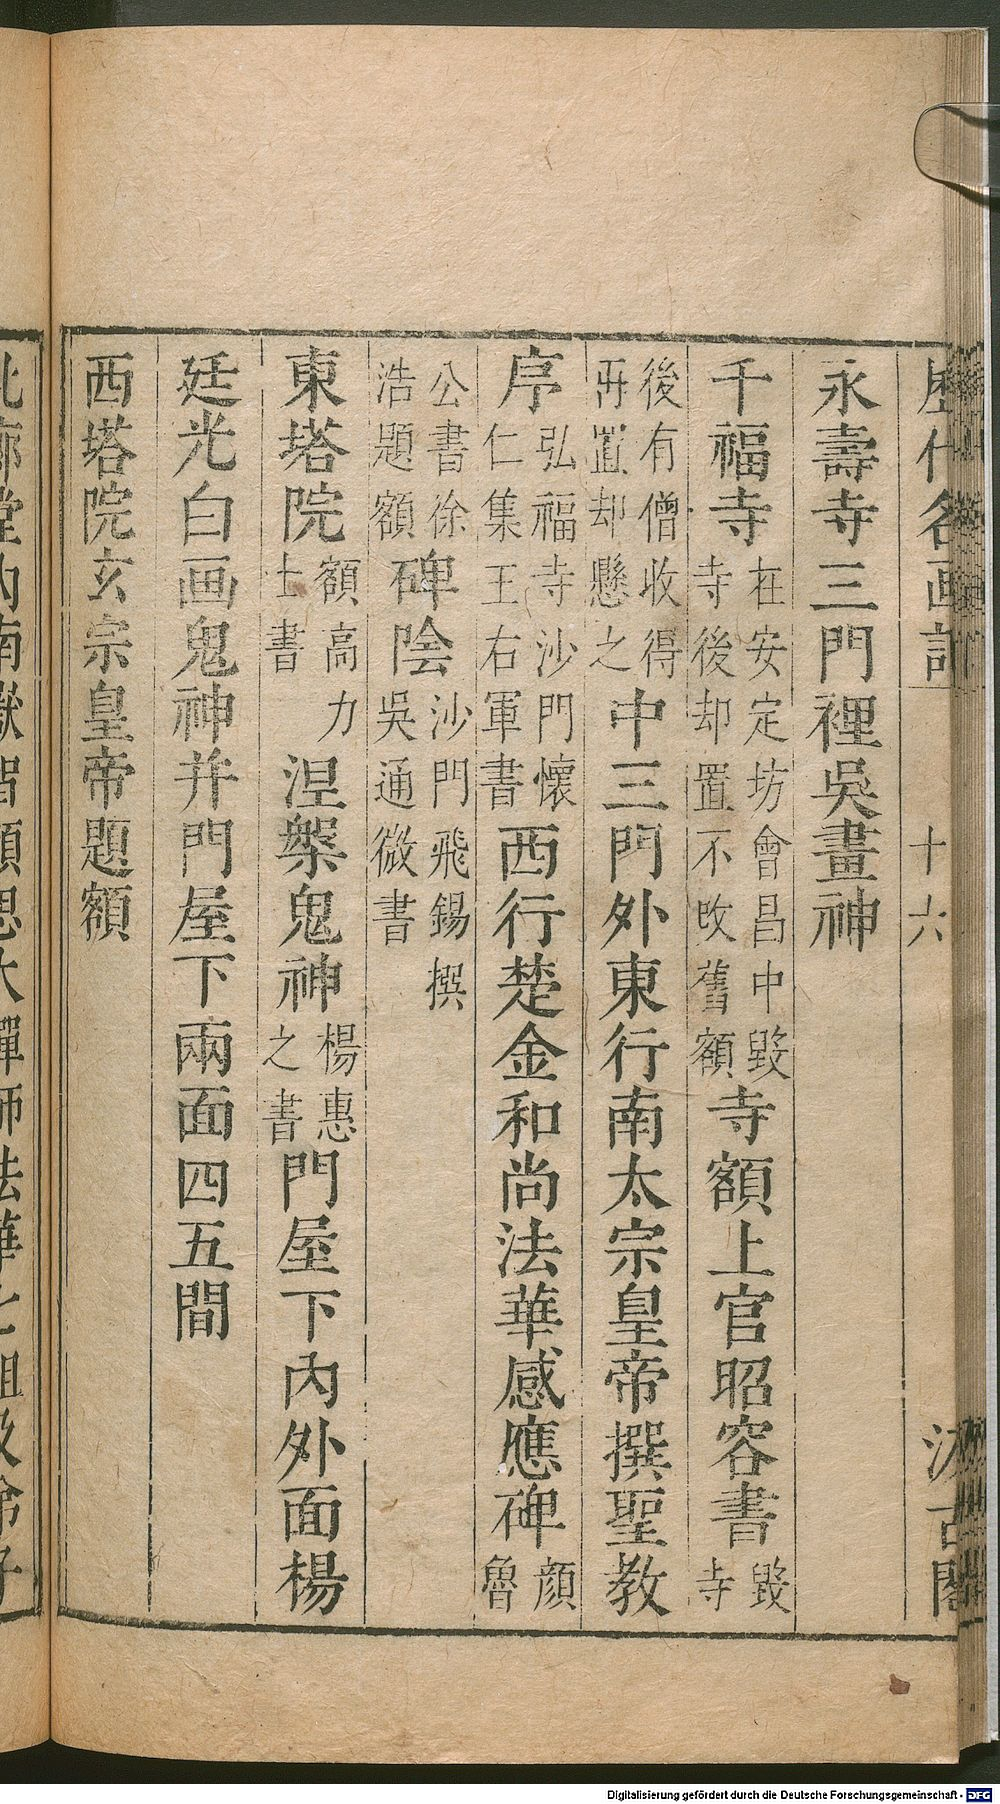 歷代名画記 十六 汲古閣
永壽寺三門裡吳畫神
千福寺在安定坊會昌中毀寺後却置不改舊額寺額上官昭容書毀寺
後有僧收得再置却懸之中三門外東行南太宗皇帝撰聖教
序弘福寺沙門懷仁集王右軍書西行楚金和尚法華感應碑顏魯
公書徐浩題額碑陰沙門飛錫撰吳通微書
東塔院額高力士書涅槃鬼神楊惠之書門屋下內外面楊
廷光白画鬼神并門屋下兩面四五間
西塔院玄宗皇帝題額
北廊堂內南嶽智顗思大禪師法華七祖及弟子
Digitalisierung gefördert durch die Deutsche Forschungsgemeinschaft - DFG